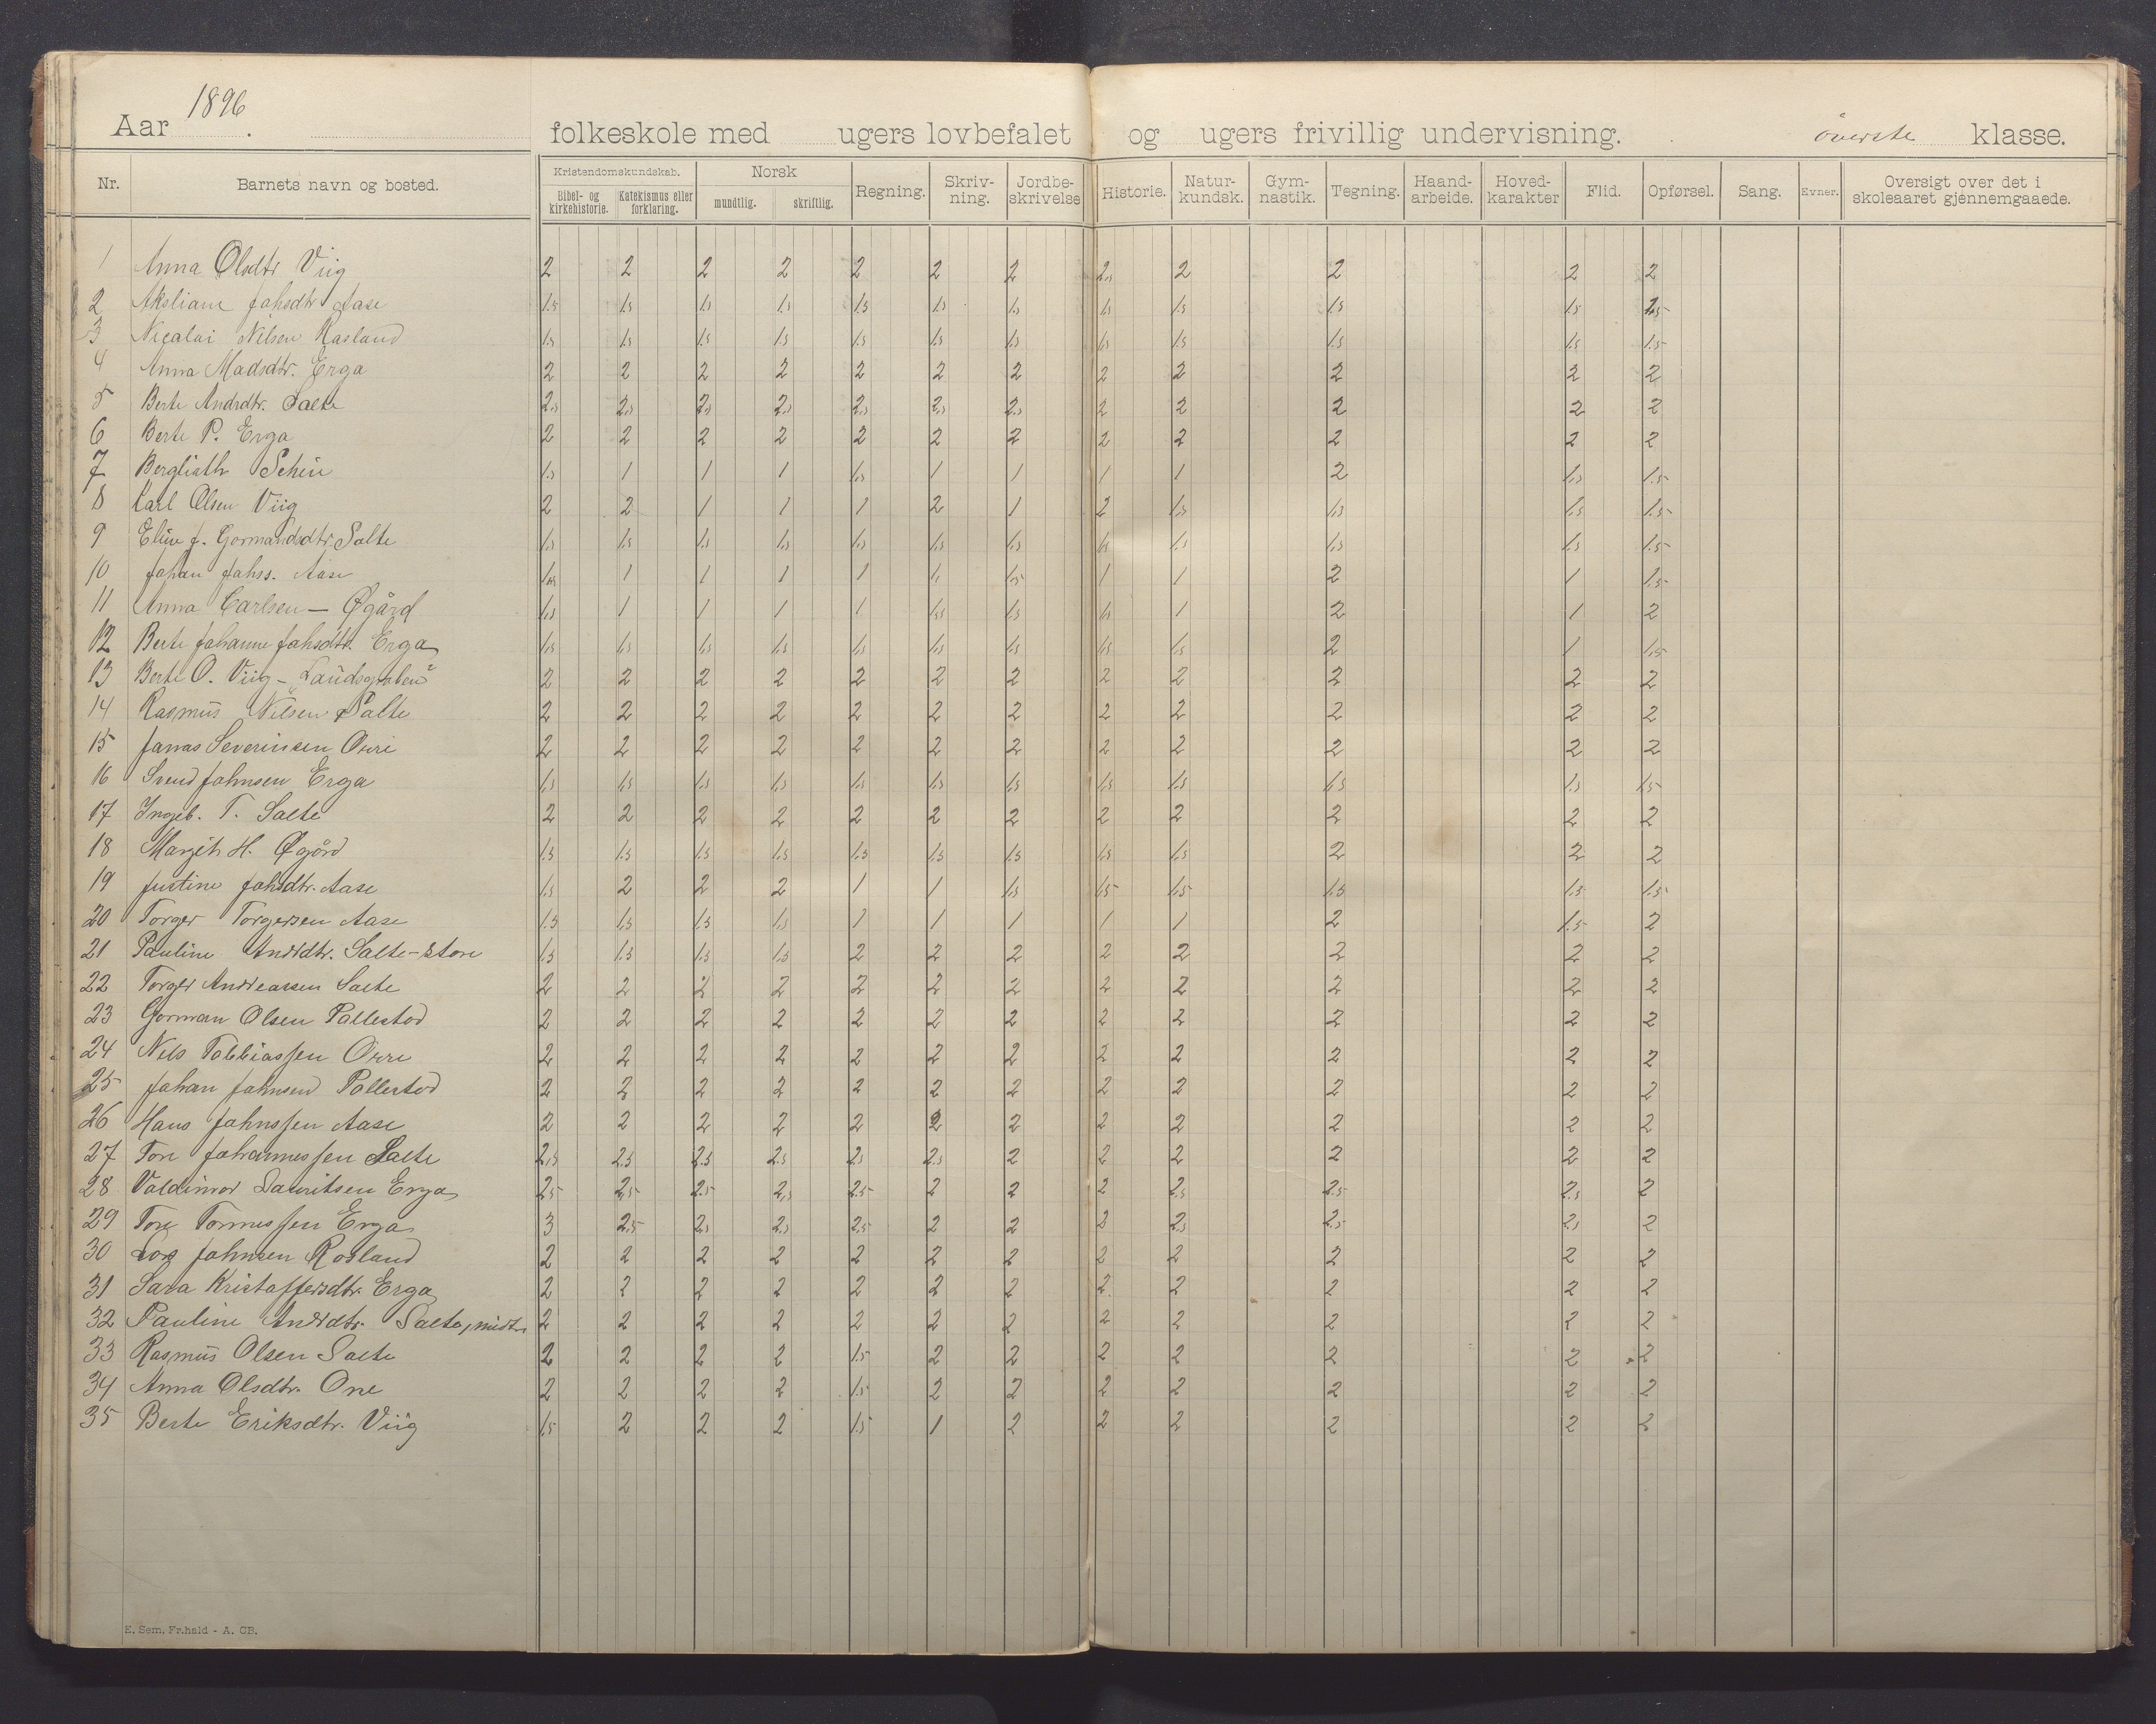 1896
Aar . folkeskole med ugers lovbefalet og ugers frivillig undervisning. överste klasse.
Nr. Barnets navn og bosted. Kristendomskundskab. Bibel- og kirkehistorie. Katekismus eller forklaring. Norsk mundtlig. skriftlig. Regning. Skriv-ning. Jordbe-skrivelse Historie. Natur-kundsk. Gym-nastik. Tegning. Haand-arbeide. Hoved-karakter Flid. Opførsel. Sang. Evner. Oversigt over det i skoleaaret gjennemgaaede.
1 Anna Olsdtr Viig 2 2 2 2 2 2 2 2 2 2 2
2 Johsdtr Aase 1.5 1.5 1.5 1.5 1.5 1.5 1.5 1.5 1.5 1.5 1.5 1.5
3 Nicolai Nilsen Rosland 1.5 1.5 1.5 1.5 1.5 1.5 1.5 1.5 1.5 1.5 1.5 1.5
4 Anna Madsdtr. Erga 2 2 2 2 2 2 2 2 2 2 2 2
5 Berte Andrdtr. Salte 2.5 2.5 2.5 2.5 2.5 2.5 2.5 2 2 2 2 2
6 Berte P. Erga 2 2 2 2 2 2 2 2 2 2 2 2
7 1.5 1 1 1 1.5 1 1 1 1 2 1.5 1.5
8 Karl Olsen Viig 2 2 1 1 1 2 1 2 1.5 1.5 1.5 1.5
9 Gormandsdtr. Salte 1.5 1.5 1.5 1.5 1.5 1.5 1.5 1.5 1.5 1.5 1.5 1.5
10 Johan Johss. Aase 1 1 1 1 1.5 1 1 2 1 1.5
11 Anna Carlsen — Øgård 1.5 1 1 1 1 1.5 1.5 1.5 1 2 1 2
12 Berte Johanne Johsdtr. Erga 1.5 1.5 1.5 1.5 1.5 1.5 1.5 1.5 1.5 2 1 1.5
13 Berte O. Viig – 2 2 2 2 2 2 2 2 2 2 2 2
14 Rasmus Nilsen Salte 2 2 2 2 2 2 2 2 2 2 2 2
15 Jonas Severinsen Orri 2 2 2 2 2 2 2 2 2 2 2 2
16 Svend Johnsen Erga 1.5 1.5 1.5 1.5 1.5 1.5 1.5 1.5 1.5 1.5 1.5 1.5
17 Ingeb. T. Salte 2 2 2 2 2 2 2 2 2 2 2 2
18 Margith H. Øgård 1.5 1.5 1.5 1.5 1.5 1.5 1.5 1.5 1.5 2 2 2
19 Justine Johsdtr. Aase 1.5 2 2 2 1 1 1.5 1.5 1.5 1.5 1.5 1.5
20 Torger Torgersen Aase 1.5 1.5 1.5 1.5 1 1 1 1 1 2 1.5 2
21 Pauline Andrdtr. Salte-store 1.5 1.5 1.5 1.5 2 2 2 2 2 2 2 2
22 Torger Andreassen Salte 2 2 2 2 2 2 2 2 2 2 2 2
23 Gorman Olsen Pollestad 2 2 2 2 2 2 2 2 2 2 2 2
24 Nils Tobbiassen Orre 2 2 2 2 2 2 2 2 2 2 2 2
25 Johan Johnsen Pollestod 2 2 2 2 2 2 2 2 2 2 2 2
26 Hans Johnssen Aase 2 2 2 2 2 2 2 2 2 2 2 2
27 Tore Johannessen Salte 2.5 2.5 2.5 2.5 2.5 2.5 2 2 2 2 2 2
28 Valdimar Lauritsen Erga 2.5 2.5 2.5 2.5 2.5 2 2 2 2.5 2.5 2.5 2
29 Tore Tonnessen Erga 3 2.5 2.5 2.5 2.5 2 2 2 2.5 2.5 2.5 2
30 Lars Johnsen Rosland 2 2 2 2 2 2 2 2 2 2 2 2
31 Sara Kristoffersdtr. Erga 2 2 2 2 2 2 2 2 2 2 2 2
32 Pauline Andrdtr. Salte, midtr 2 2 2 2 2 2 2 2 2 2 2 2
33 Rasmus Olsen Salte 2 2 2 2 1.5 2 2 2 2 2 2 2
34 Anna Olsdtr. Orre 2 2 2 2 1.5 2 2 2 2 2 2 2
35 Berte Eriksdtr. Viig 1.5 2 2 2 1.5 1 2 2 2 2 2 2
E. Sem. Fr.hald - A. CB.